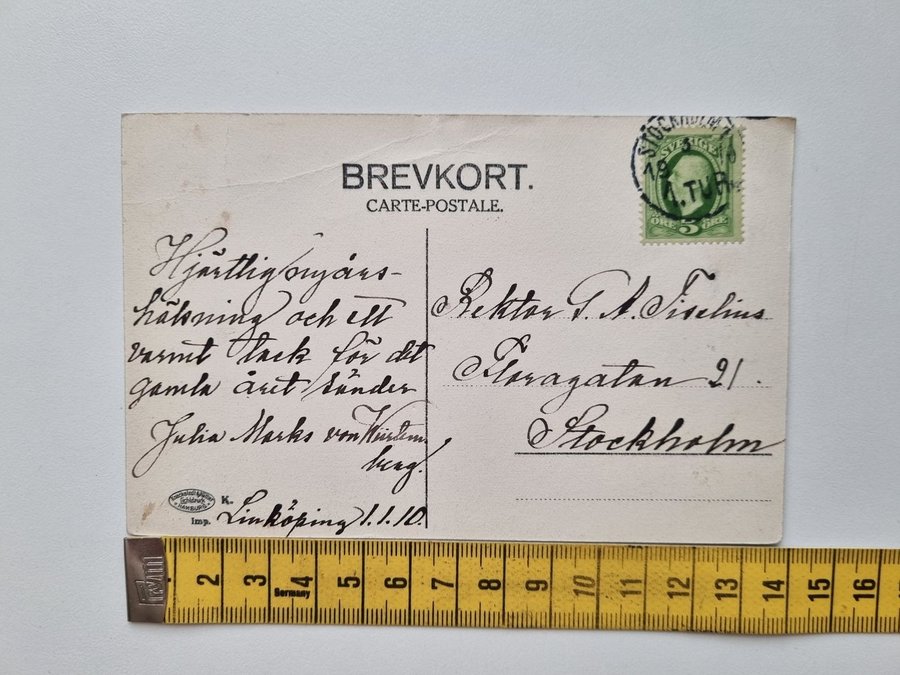 BREVKORT.
CARTE-POSTALE.
STOCKHOLM 1
19
1.TUR
SVERIGE
ÖRE 5 ÖRE
Hjärtlig nyårs-
hälsning och ett
varmt tack för det
gamla året sänder
Julia Marks von Würtem-
berg!
Rektor G. A. Tiselius
Floragatan 21.
Stockholm
HAMBURG
K.
Imp.
Linköping 1.1.10.
2 3 4 5 6 7 8 9 10 11 12 13 14 15 16
Germany